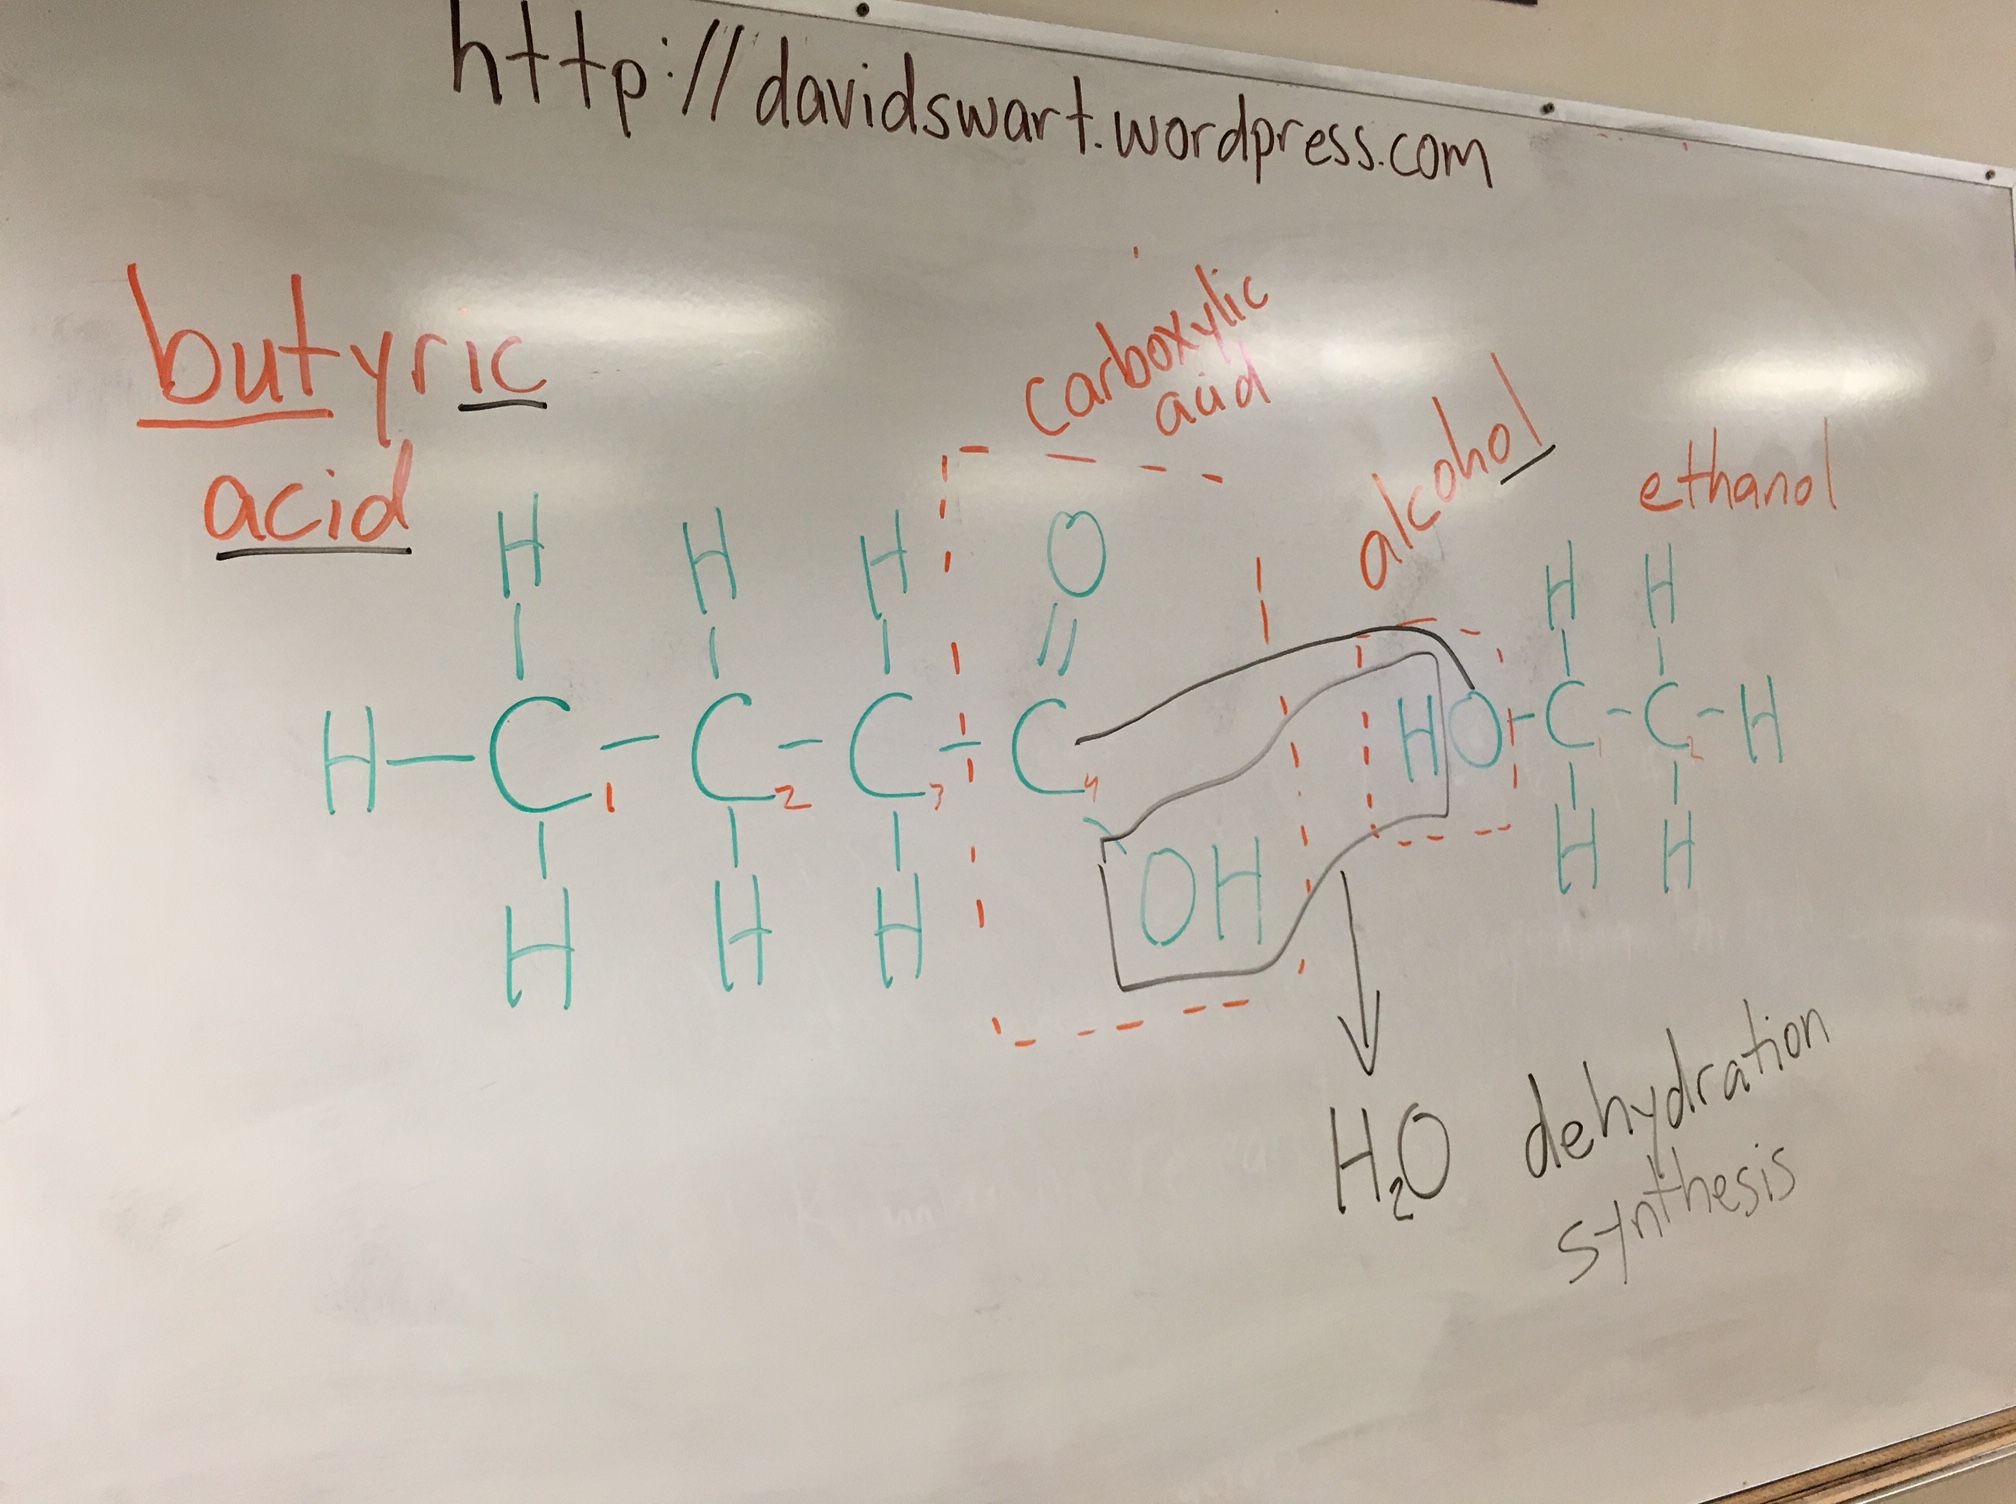 http://davidswart.wordpress.com
butyric
acid
carboxylic
acid
alcohol
ethanol
H H H O H H
H—C1-C2-C3-C4 HO-C1-C2-H
OH
H H H H H
H2O dehydration
synthesis